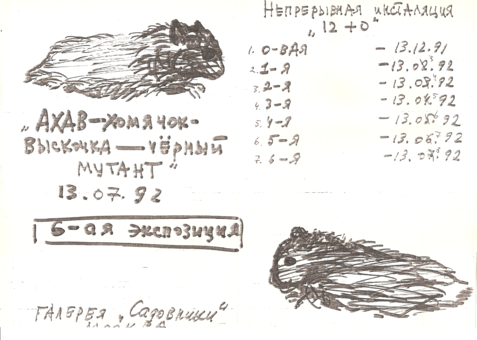 „АХАВ-хомячок-
выскочка—чёрный
мутант"
13.07.92
6-ая экспозиция
ГАЛЕРЕЯ „Садовники"
МОСКВА
Непрерывная инсталяция
"12+0"
1. 0-вая - 13.12.91
2. 1-я - 13.02.92
3. 2-я - 13.03.92
4. 3-я - 13.04.92
5. 4-я - 13.05.92
6. 5-я - 13.06.92
7. 6-я - 13.07.92